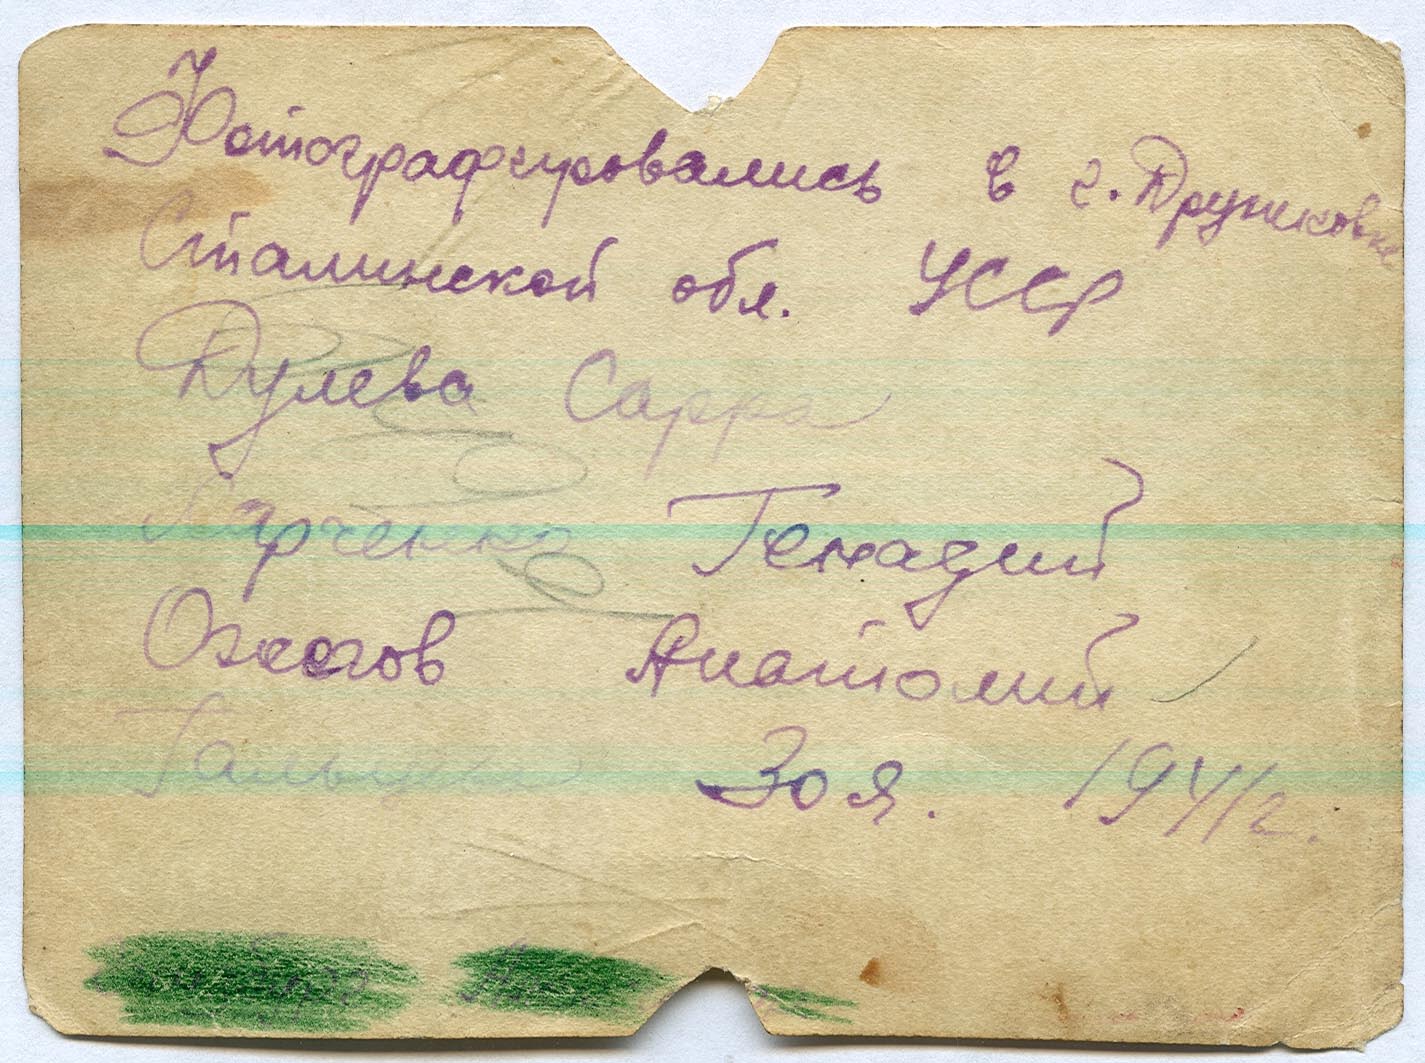 Фотографировались в г. Дружковке
Сталинской обл. УССР
Дулева Сарра
Харченко Генадий
Ожегов Анатолий
Зоя. 1941г.